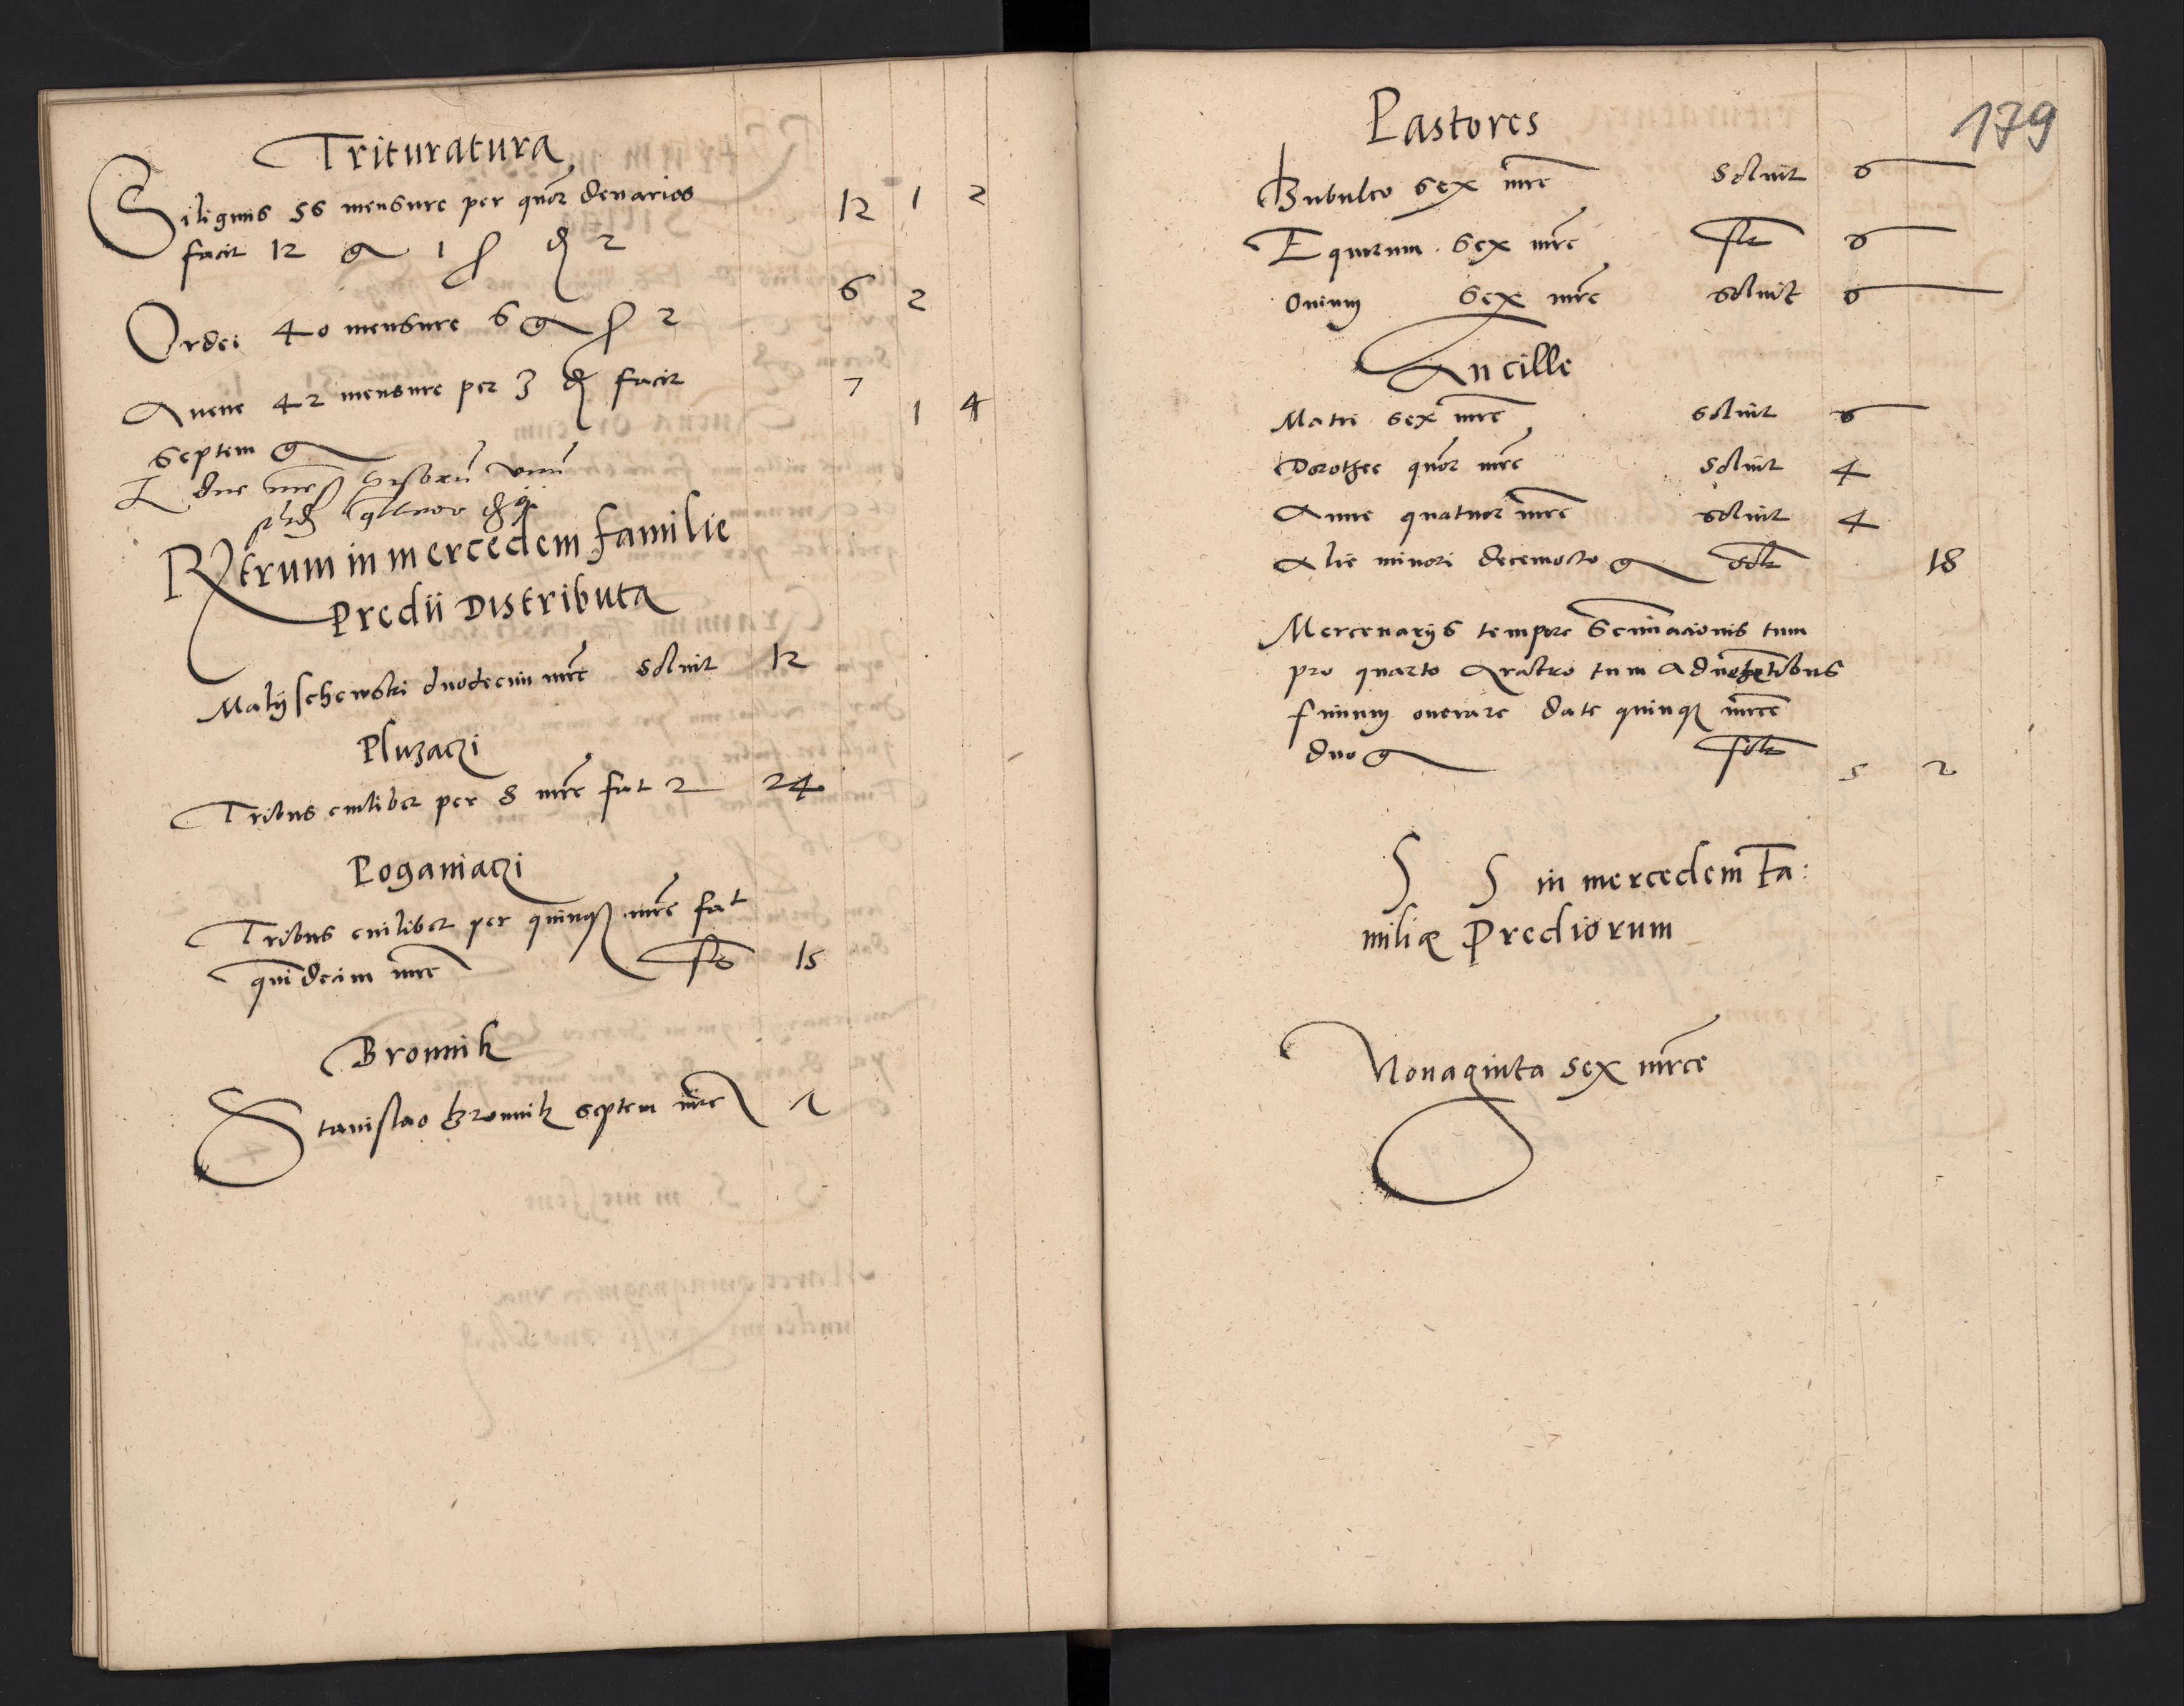 Trituratura
Siliginis 56 mensure per quor denarios 12 1 2
facit 12 g 1 ß d 2
Ordei 40 mensure 6 g ß 2 6 2
Avene 42 mensure per 3 d facit 7
septem g 1 4
I due mes unu
Rtrum in mercedem familie
Predii Distributa
Malyschewski duodecim mrc solvit 12
Pluzaczi
Tribus cuilibet per 8 mrc fat 2 24
Poganiaczi
Tribus cuilibet per quinq mrc fat
quidecim mrc 15
Bronnik
Stanislao bronnik septem mrc
179
Pastores
Bubulco sex mrc Solvit 6
Equirum sex mrc slt 6
Ovium sex mrc solvit 6
Ancille
Matri sex mrc solvit 6
Dorothee quor mrc solvit 4
Anne quatuor mrc solvit 4
Alie minori decemocto g solt 18
Mercenariis tempore Seminacionis tum
pro quarto Aratro tum Advehetibus
fimum onerare date quinq mrce
duo g solt 5 2
S S in mercedem Fa:
miliæ Prediorum
Nonaginta sex mrce